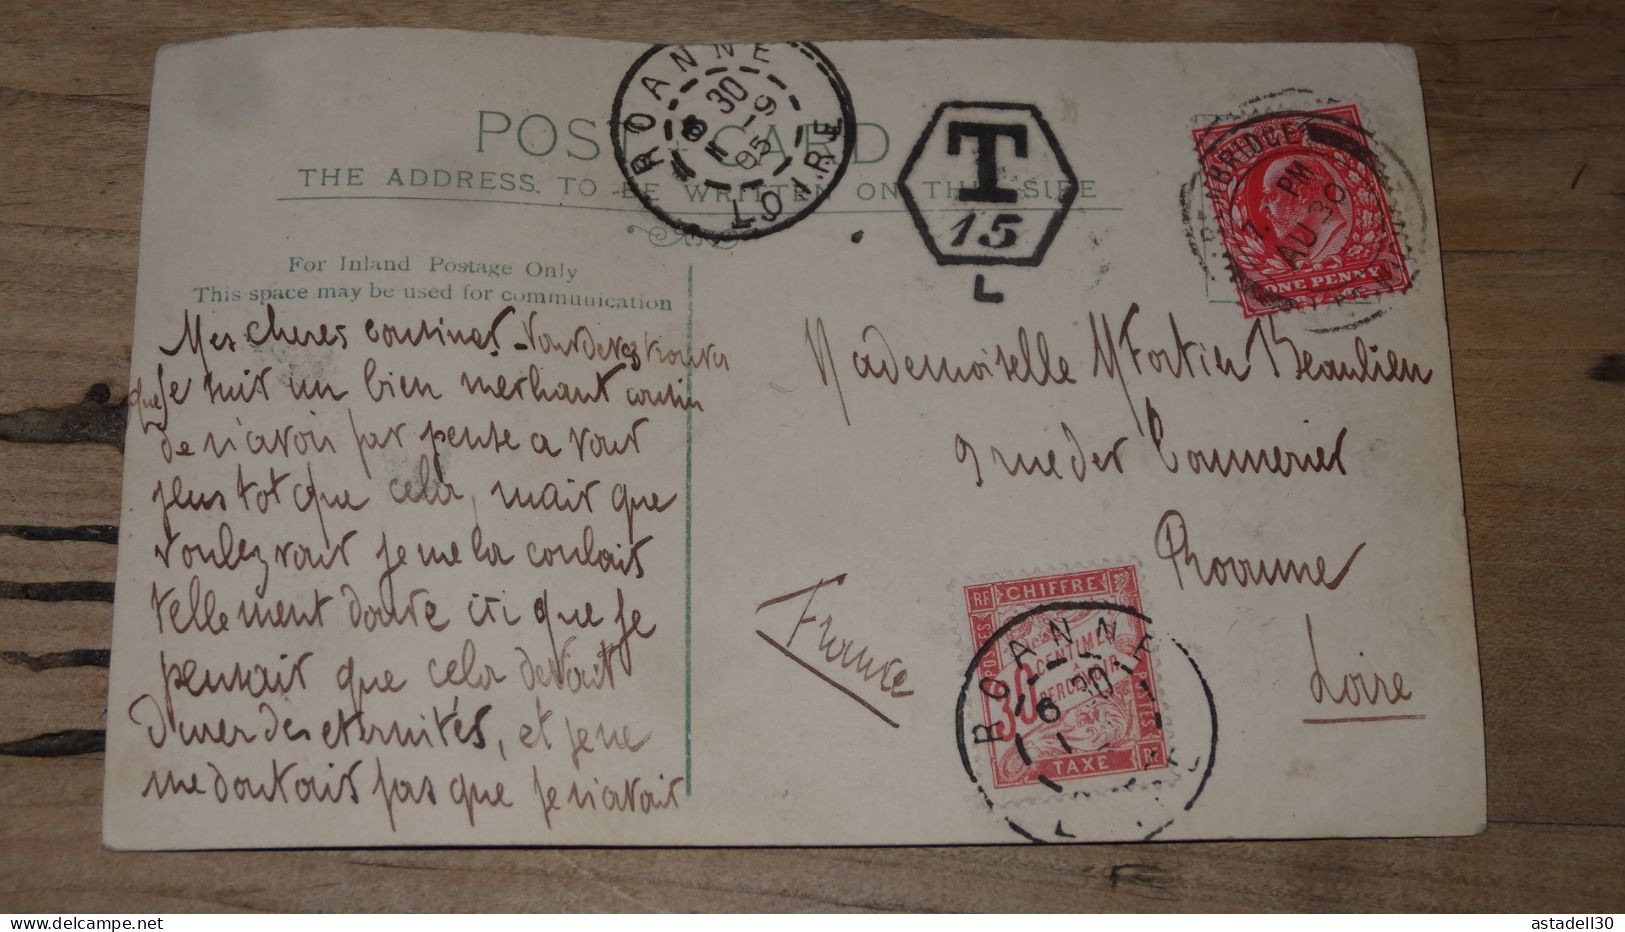 POST CARD
THE ADDRESS TO BE WRITTEN ON THIS SIDE
For Inland Postage Only
This space may be used for communication
Mes cheres cousines - Vous devez trouver
que Je suis un bien mechant cousin
de n'avoir pas pensé a vous
plus tot que cela, mais que
voulez vous je me la coulais
tellement douce ici que je
pensais que cela devait
durer des eternités, et je ne
me doutais pas que je n'avais
ROANNE
30
6 1-9
05
LOIRE
T
15
L
7. PM
AU 30
ONE PENNY
Mademoiselle M Fortier Beaulieu
9 rue des
Roanne
Loire
France
RF CHIFFRE
POSTES
30
CENTIMES
A
PERCEVOIR
POSTES
TAXE RF
ROANNE
6 30
delcampe.net
astadell30